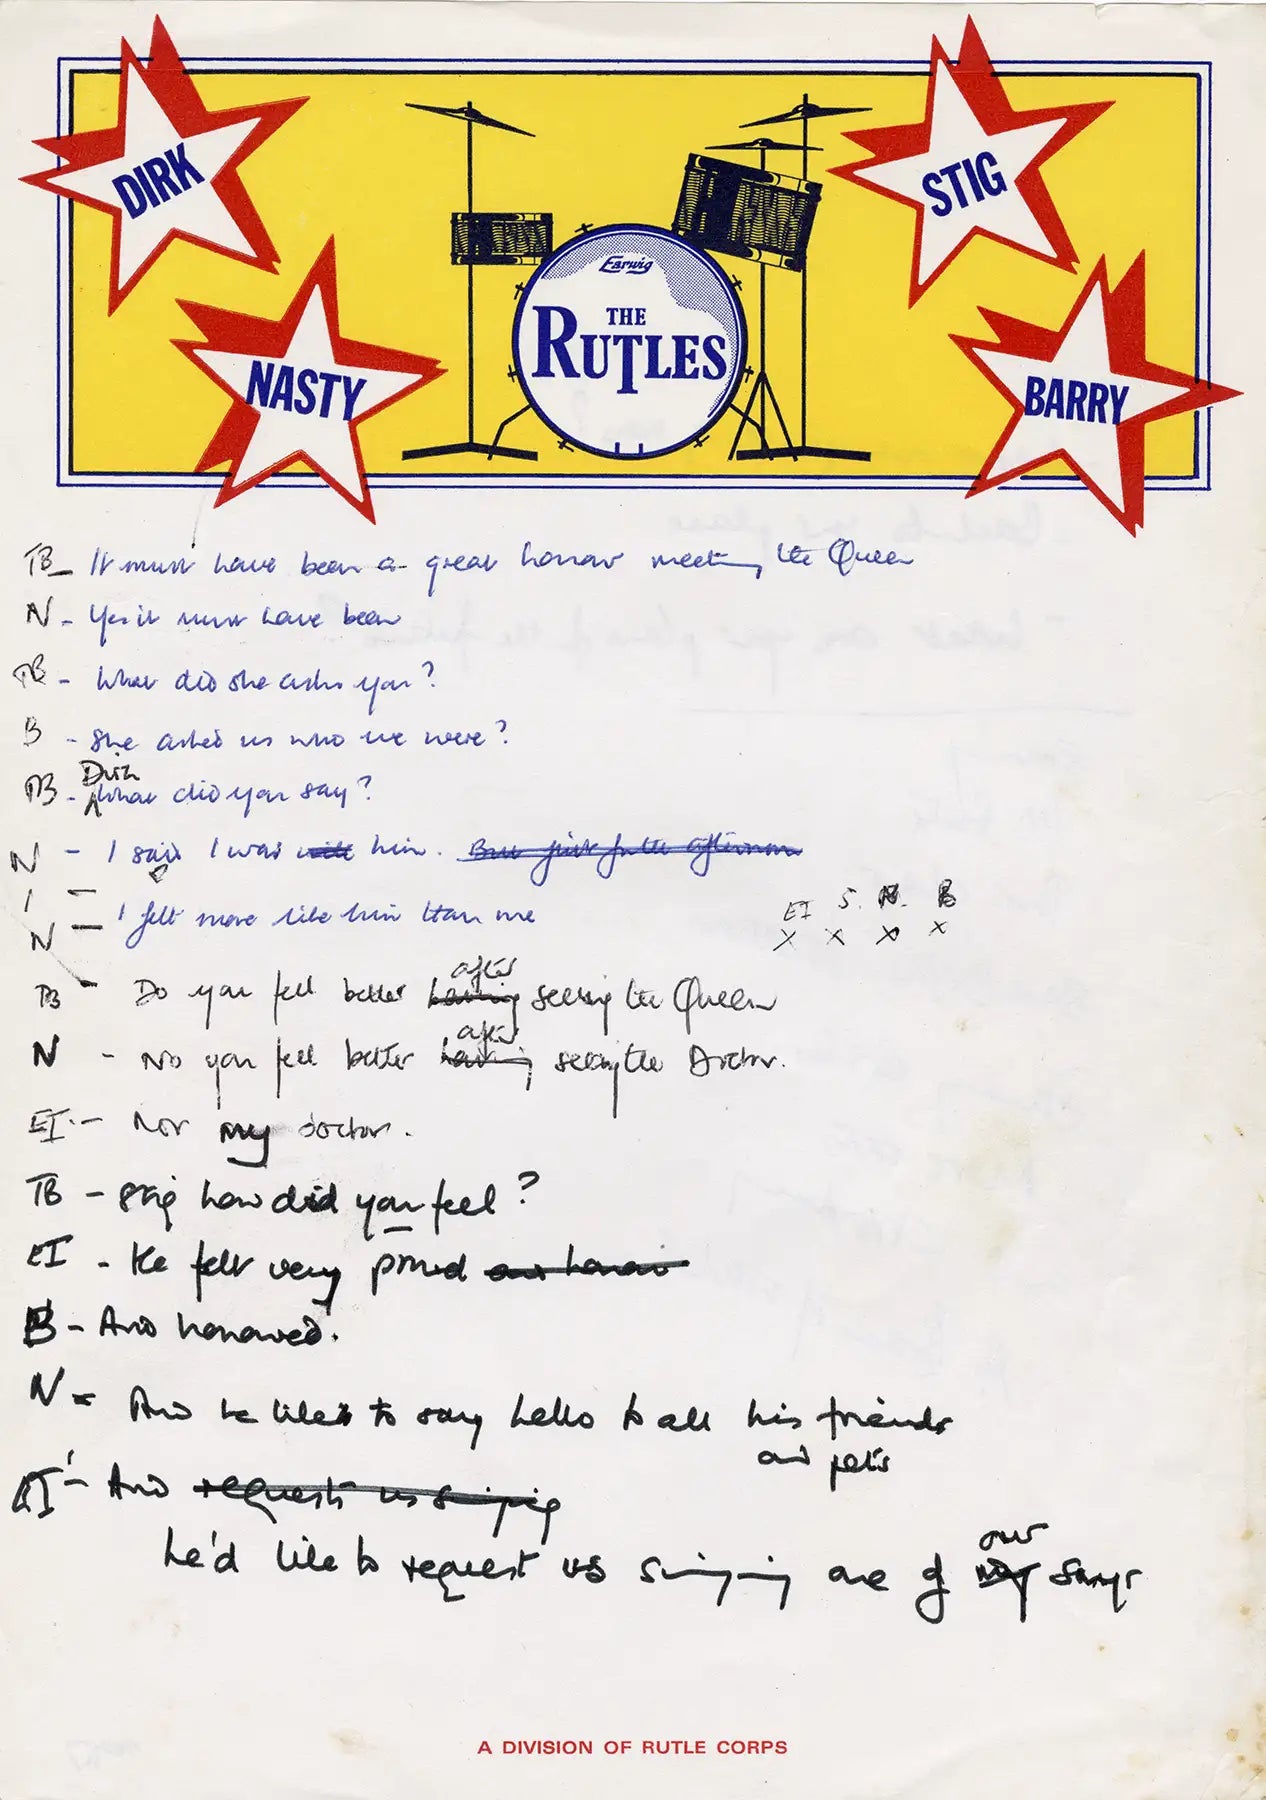 DIRK
STIG
NASTY
BARRY
Earwig
THE
RUTLES
TB - It must have been a great honour meeting the Queen
N - Yes it must have been
TB - What did she ask you?
B - She asked us who we were?
TB - Dirk What did you say?
N - I said I was him. But just for the afternoon
I -
N - I felt more like him than me
EI S. N. B
X X X X
TB - Do you feel better having after seeing the Queen
N - No you feel better having after seeing the Doctor.
EI - Not my doctor.
TB - Stig how did you feel?
EI - He felt very proud
B - And honoured.
N - And he likes to say hello to all his friends
and pets
EI - And requests us singing
he'd like to request us singing one of my our songs
A DIVISION OF RUTLE CORPS